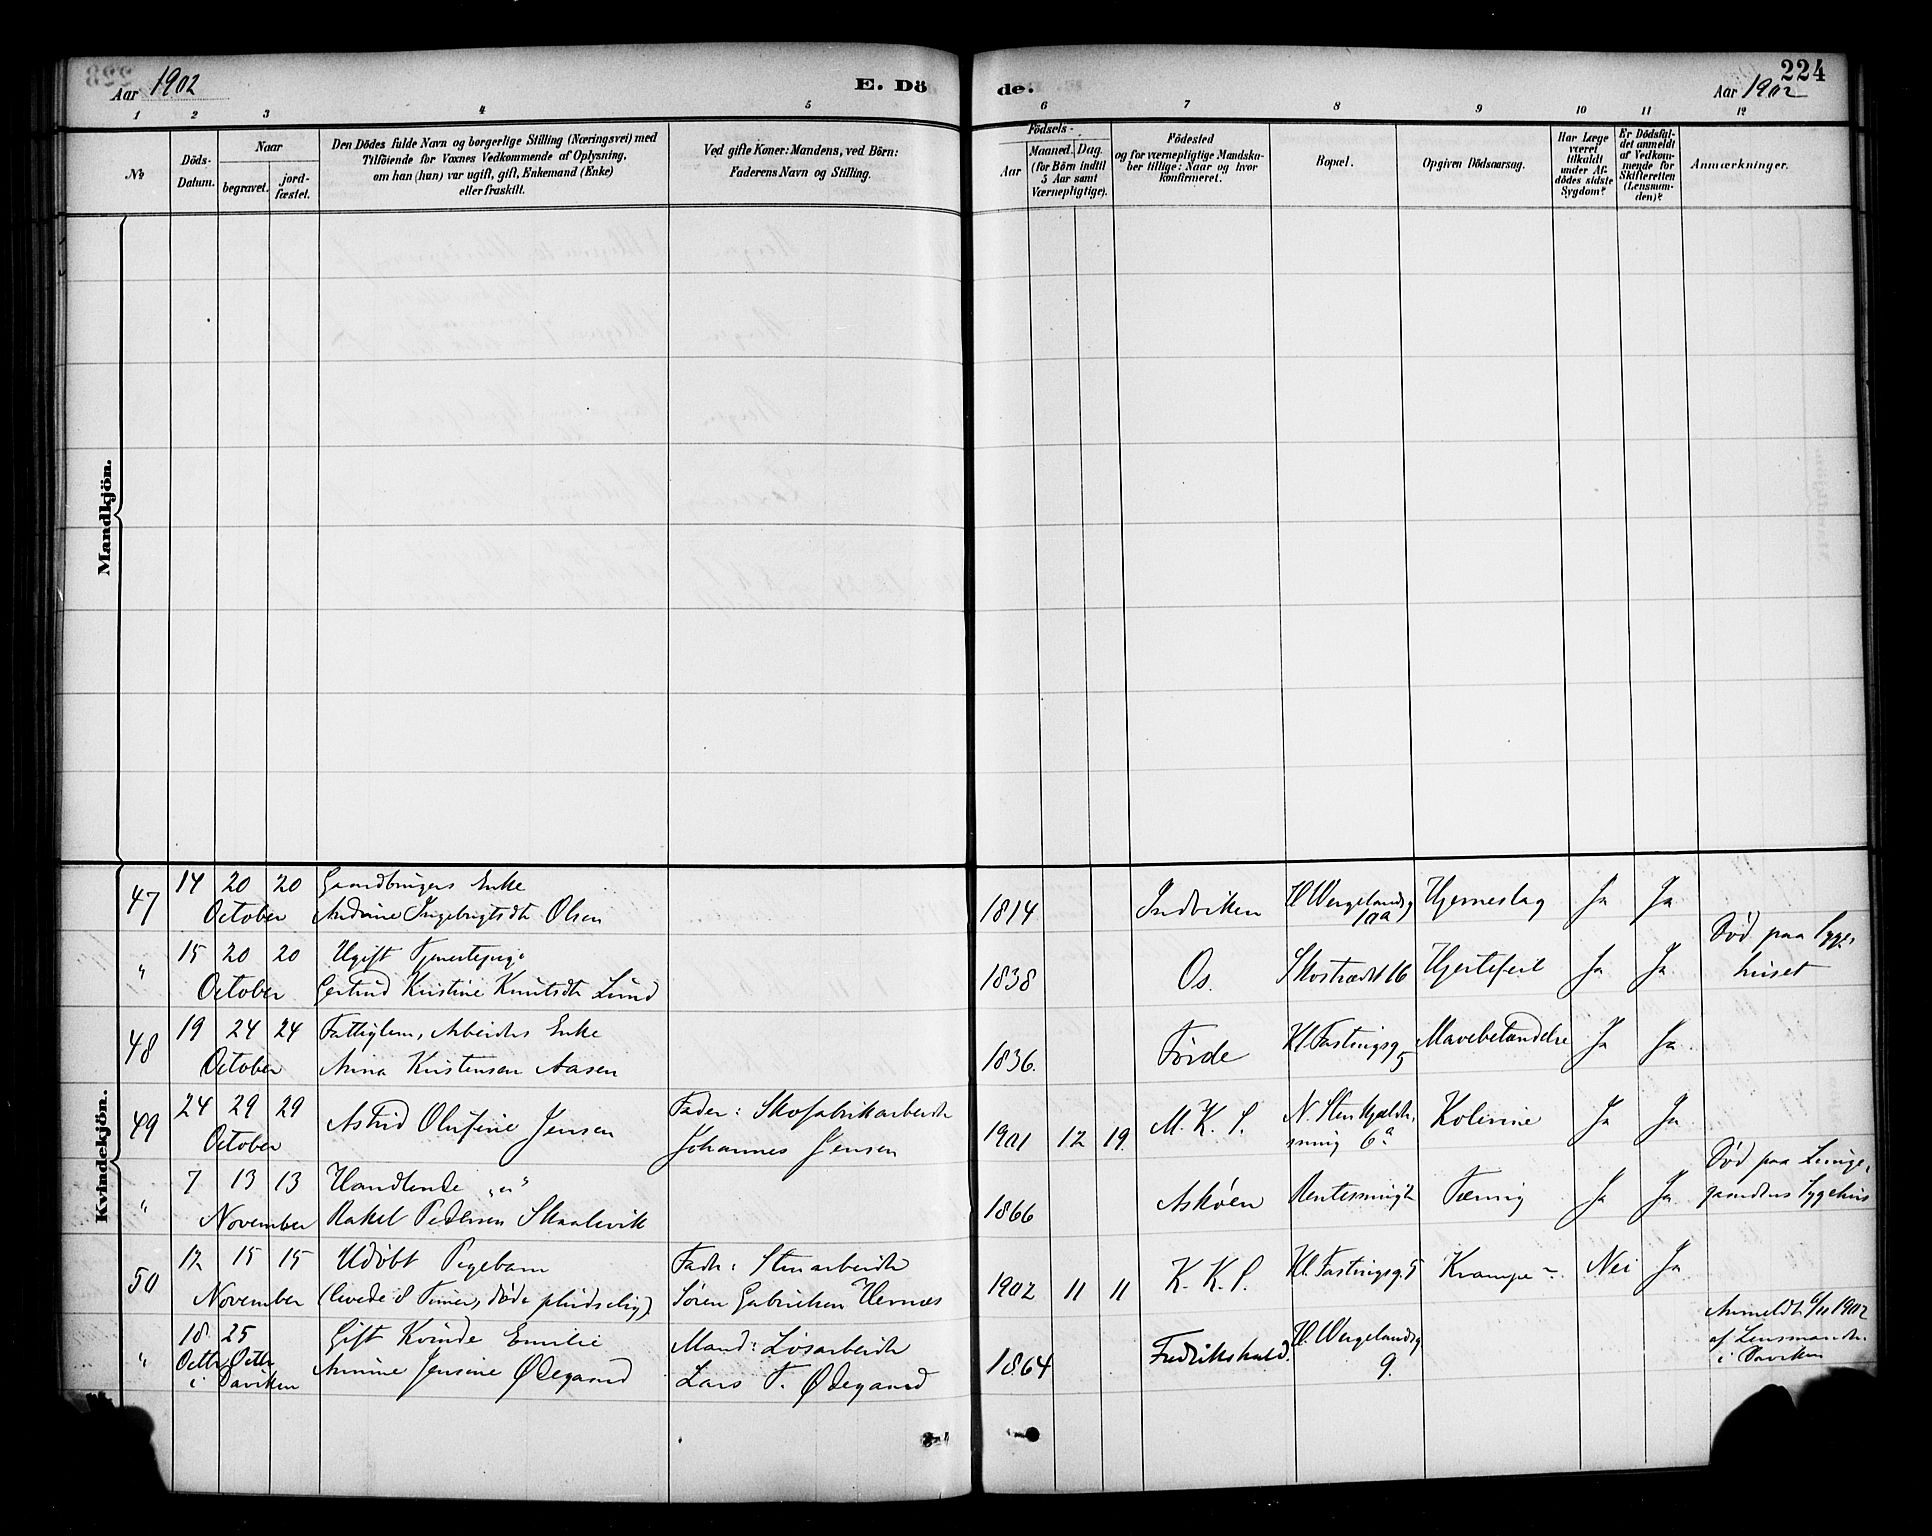 Aar 1902
E. Dö
de.
224
Aar 1902
1 2 3 4 5 6 7 8 9 10 11 12
No
Döds-
Datum.
Naar
begravet.
jord-
fæstet.
Den Dödes fulde Navn og borgerlige Stilling (Næringsvei) med
Tilföiende for Voxnes Vedkommende af Oplysning,
om han (hun) var ugift, gift, Enkemand (Enke)
eller fraskilt.
Ved gifte Koner: Mandens, ved Börn:
Faderens Navn og Stilling.
Födsels-
Aar
Maaned. Dag.
(for Börn indtil
5 Aar samt
Værnepligtige).
Födested
og for værnepligtige Mandska-
ber tillige: Naar og hvor
konfirmeret.
Bopæl.
Opgiven Dödsaarsag.
Har Læge
været
tilkaldt
under Af-
dödes sidste
Sygdom?
Er Dödsfal-
det anmeldt
af Vedkom-
mende for
Skifteretten
(Lensman-
den)?
Anmærkninger.
Mandkjön.
Kvindekjön.
47 14 20 20 Gaardbrugers Enke
October Andrine Ingebrigtsdtr Olsen
1814 Indviken H Wergelandsg Hjerneslag Ja Ja
10a
" 15 20 20 Ugift Tjenestepige
October Gertrud Kristine Knutsdtr Lund
1838 Os. Skostrædet 16 Hjertefeil Ja Ja
Död paa Syge-
huset
48 19 24 24 Fattiglem, Arbeiders Enke
October Anna Kristensen Aasen
1836. Förde Kl. Fastingsg 5 Mavebetændelse Ja Ja
49 24 29 29 Astrid Olufine Jensen
October
Fader: Skofabrikarbeider
Johannes Jensen
1901 12 19. M. K. S. N. Stenkjælder-
smug 6a Kolerine Ja Ja
" 7 13 13 Handlende "u"
November Rakel Pedersen Skaalevik
1866 Asköen Tæring Ja Ja
Död paa Lunge-
gaardens Sygehus
50 12 15 15 Udöbt Pigebarn
November (levede 8 Timer, döde pludselig)
Fader: Stenarbeider
Sören Gabrielsen Hernæs
1902 11 11 K. K. S. Kl. Fastingsg. 5 Krampe Nei Ja
" 18 25 Gift Kvinde Emilie
Octbr Octbr Annine Jensine Ødegaard
i Daviken
Mand: Lösarbeider
Lars T. Ødegaard
1864 Fredrikshald. H. Wergelandsg
9.
Anmeldt 6/11 1902
af Lensmanden
i Daviken